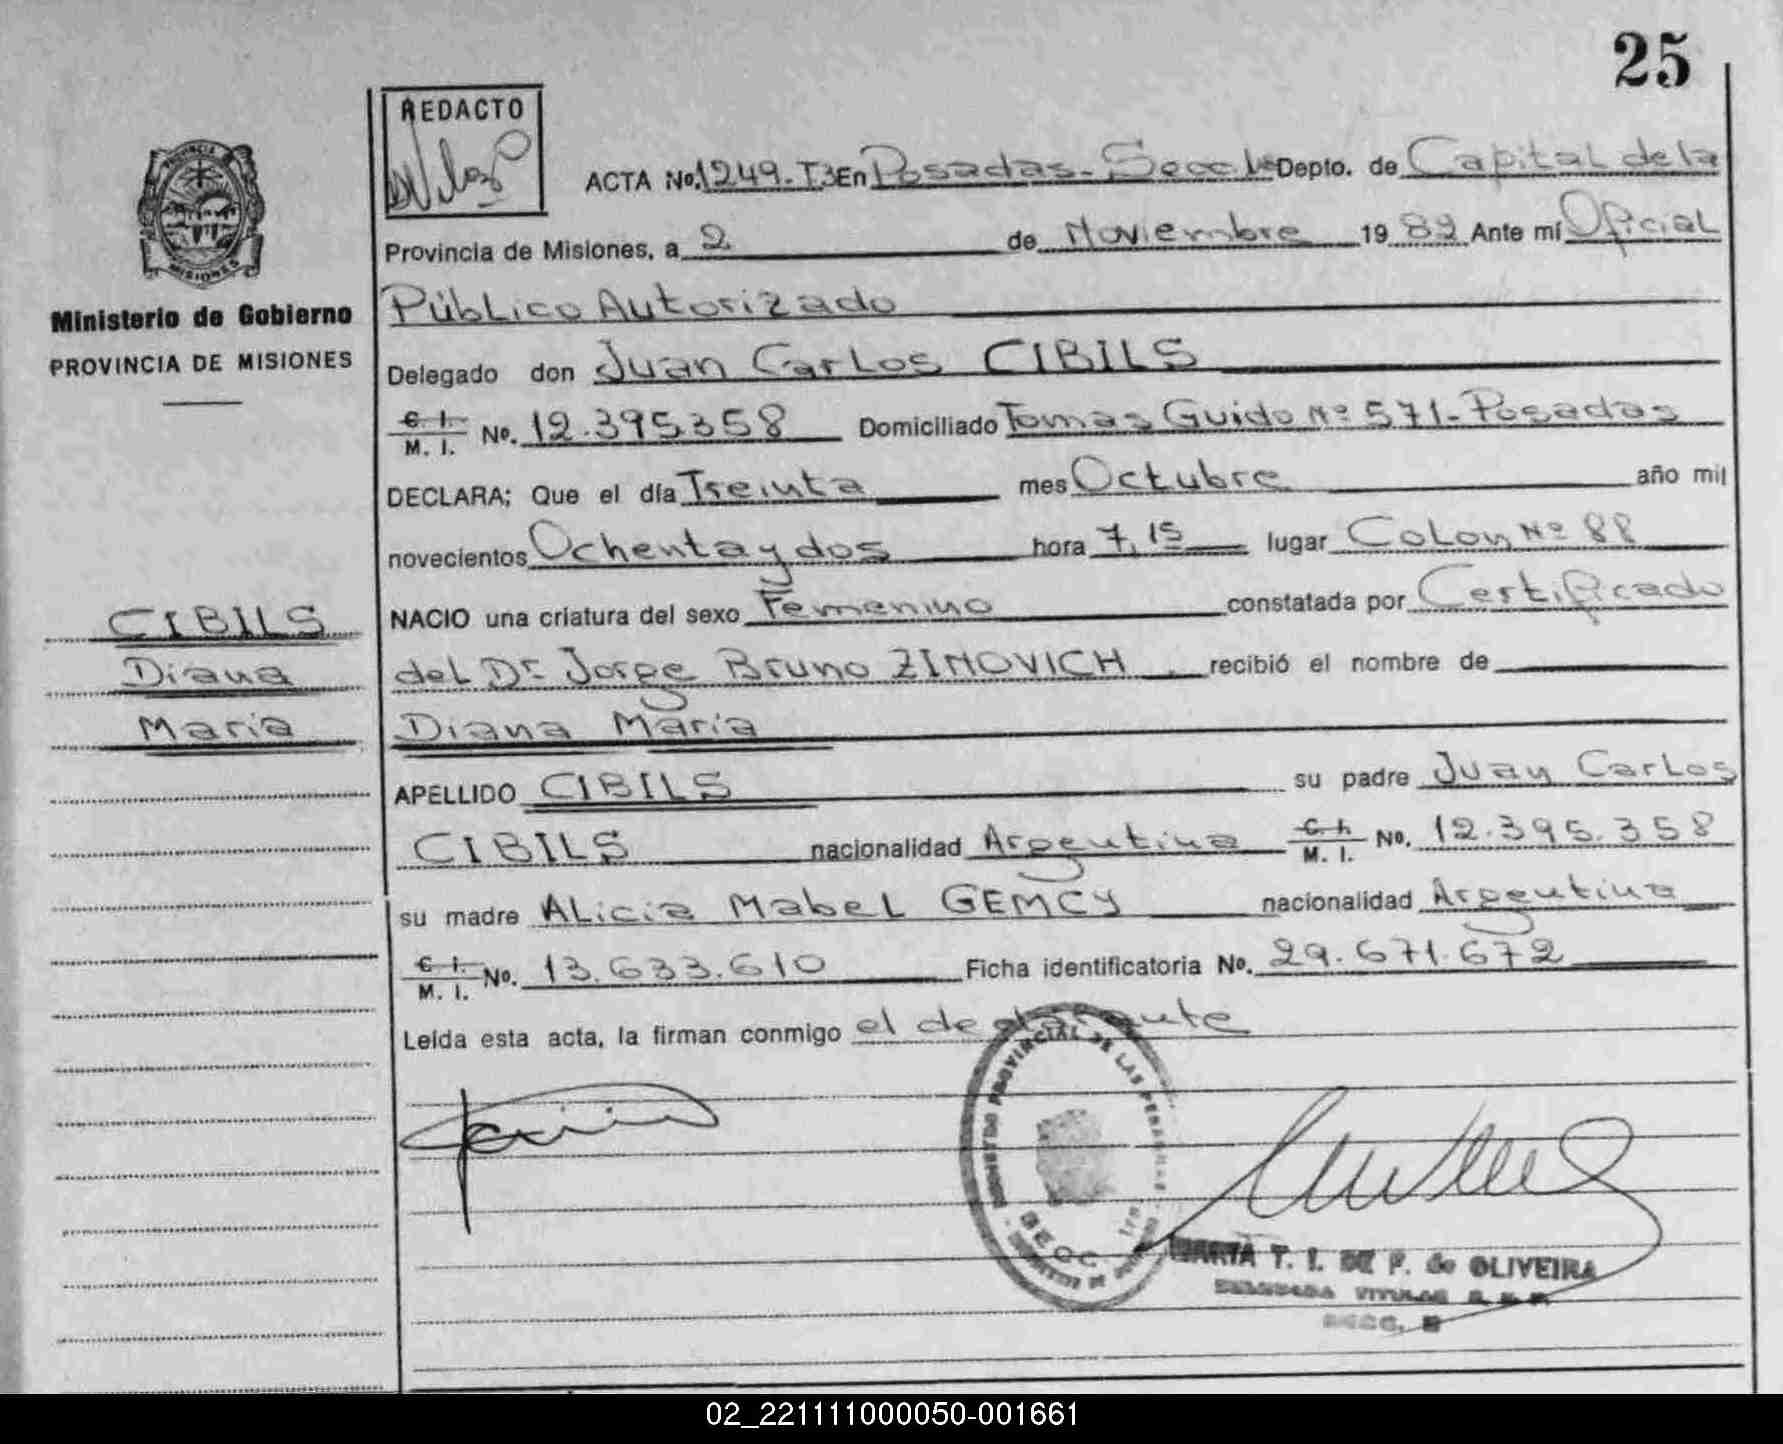 25
REDACTO
ACTA No. 1249-T3 En Posadas - Secc 1ª Depto. de Capital de la
Provincia de Misiones, a 2 de Noviembre 1982 Ante mí Oficial
Público Autorizado
Delegado don Juan Carlos CIBILS
C. I. M. I. No. 12.395.358 Domiciliado Tomas Guido Nº 571 - Posadas
DECLARA; Que el día Treinta mes Octubre año mil
novecientos Ochenta y dos hora 7,15 lugar Colon Nº 88
NACIO una criatura del sexo Femenino constatada por Certificado
del Dr Jorge Bruno ZIMOVICH recibió el nombre de
Diana María
APELLIDO CIBILS su padre Juan Carlos
CIBILS nacionalidad Argentina C. I. M. I. No. 12.395.358
su madre Alicia Mabel GEMCY nacionalidad Argentina
C. I. M. I. No. 13.633.610 Ficha identificatoria No. 29.671.672
Leída esta acta, la firman conmigo el declarante
PROVINCIA
MISIONES
Ministerio de Gobierno
PROVINCIA DE MISIONES
CIBILS
Diana
María
PROVINCIAL DE LAS PERSONAS
SECC
T. I. DE F. de OLIVEIRA
TITULAR
02_221111000050-001661